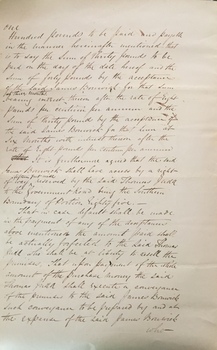 one
Hundred pounds to be paid and payable
in the manner hereinafter mentioned that
is to say the Sum of thirty pounds to be
paid on the day of the date hereof and the
Sum of forty pounds by the acceptance
of the said James for that Sum
bearing interest thereon after the rate of eight
pounds per centum per annum and the
Sum of thirty pounds by the acceptance of
the said James for that Sum at
Six months with interest thereon after the
rate of eight pounds per centum per annum
It is furthermore agreed that the said
James shall have access by a right of
way reserved by the said Thomas
to the Government Road being the Southern
Boundary of Portion Eighty five
That in case default shall be made
in the payment of any of the instalments
above mentioned the amount paid shall
be actually forfeited to the said Thomas
and he shall be at liberty to resell the
premises That upon payment of the whole
amount of the purchase money the said
Thomas shall execute a conveyance
of the premises to the said James
such conveyance to be prepared by and at
the expense of the said James